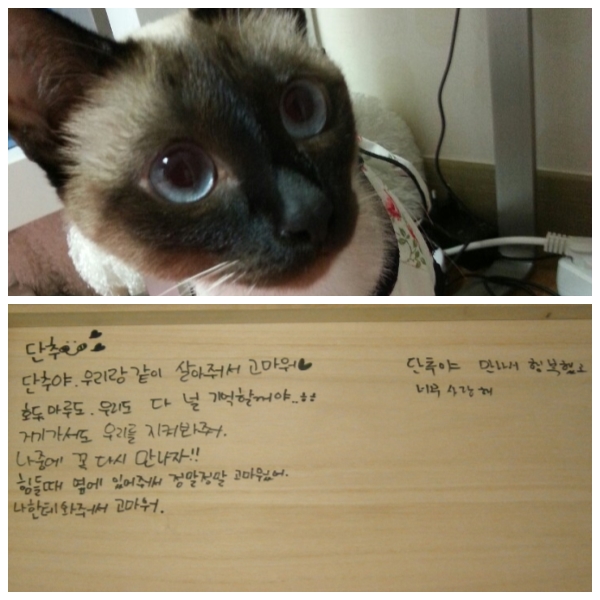 단추
단추야. 우리랑 같이 살아줘서 고마워♥
호두, 마루도. 우리도 다 널 기억할꺼야..ㅠㅠ
거기가서도 우리를 지켜봐줘.
나중에 꼭 다시 만나자!!
힘들때 옆에 있어줘서 정말정말 고마웠어.
나한테 와줘서 고마워.
단추야 만나서 행복했고
너무 사랑해